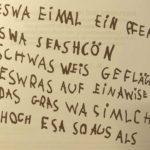 ESWA EIMAL EIN PFER
SWA SEASHCÖN
SCHWAS WEIS GEFLÄG
ESWRAS AUF EINAWISE
DAS GRAS WASIMLCH
HOCH ESA SO AUS ALS